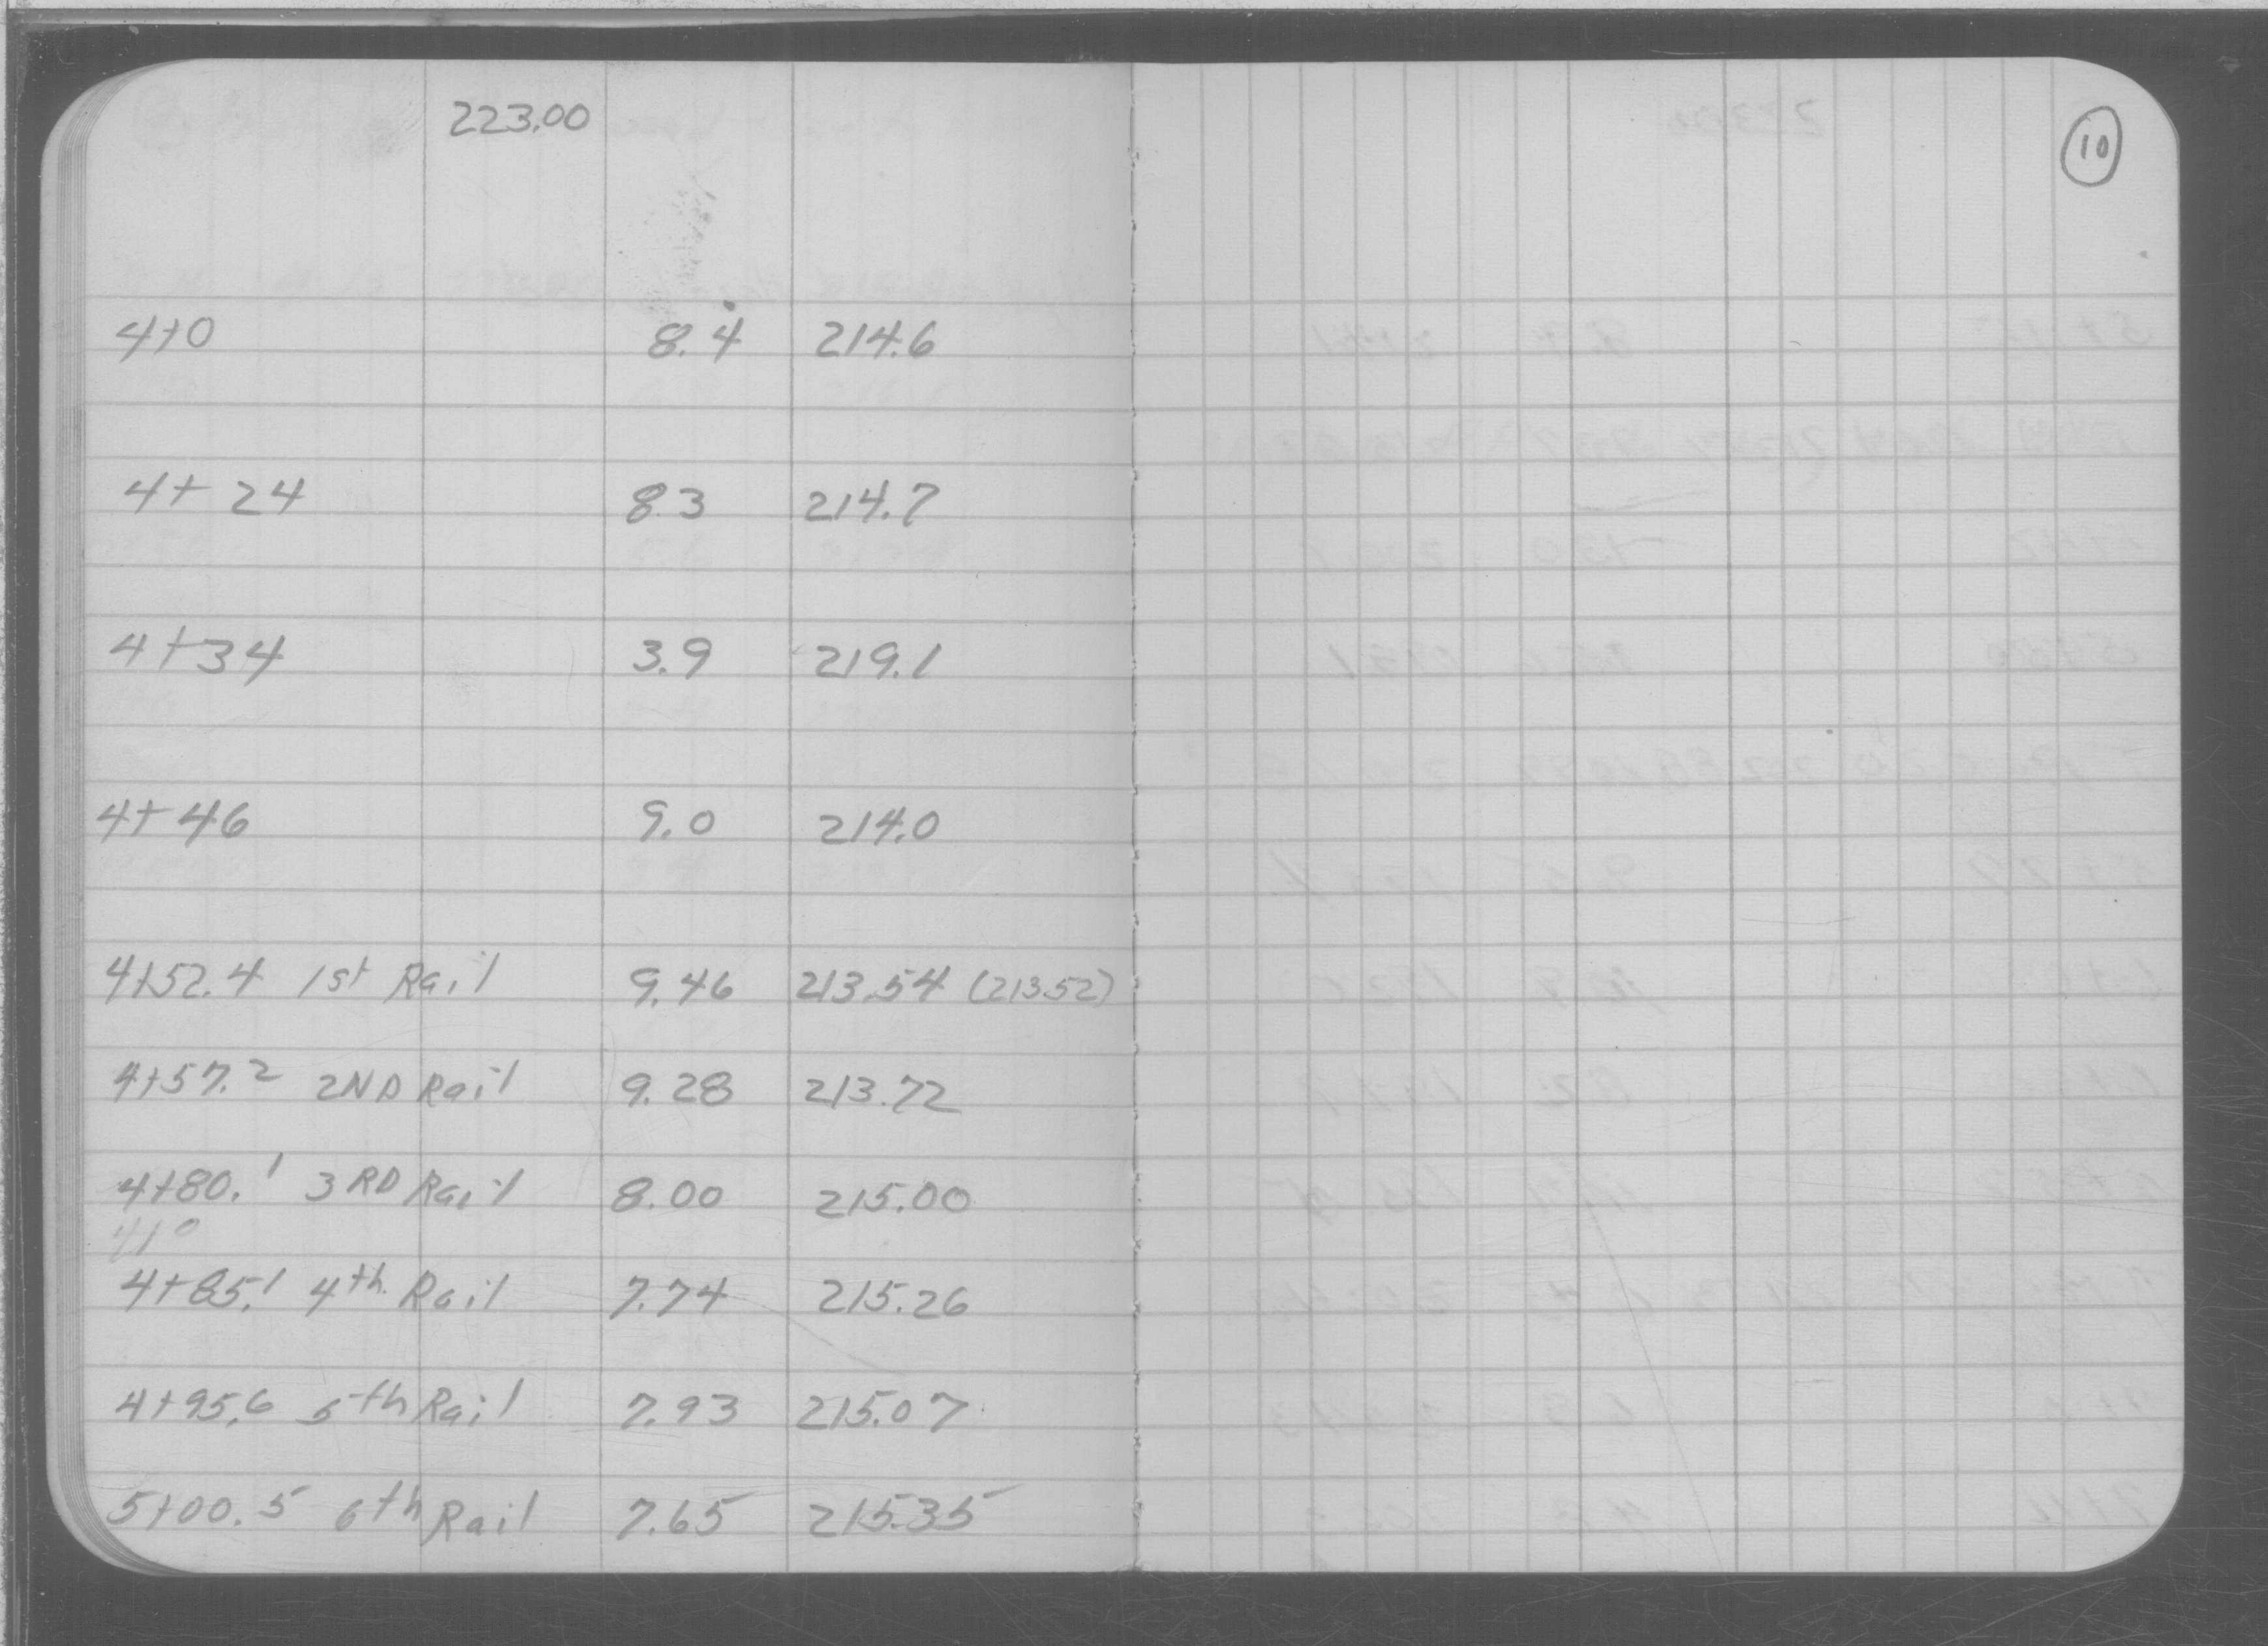 223.00
10
4+0 8.4 214.6
4+24 8.3 214.7
4+34 3.9 219.1
4+46 9.0 214.0
4+52.4 1st Rail 9.46 213.54 (213.52)
4+57.2 2ND Rail 9.28 213.72
4+80.1 3RD Rail 8.00 215.00
4+85.1 4th Rail 7.74 215.26
4+95.6 5th Rail 7.93 215.07
5+00.5 6th Rail 7.65 215.35